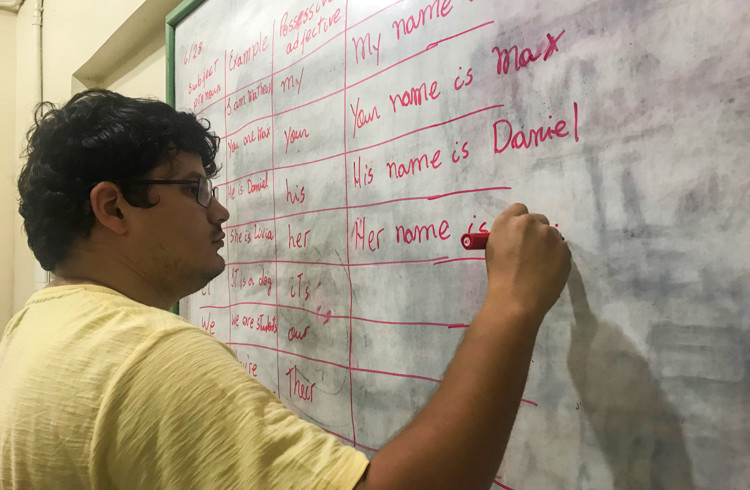 6/23
subject pronoun
Example
Possessive adjective
My name
I am Matheus
my
You are Max
your
Your name is Max
He is Daniel
his
His name is Daniel
She is Livia
her
Her name is
IT is a dog
iTs
We
We are students
our
Their